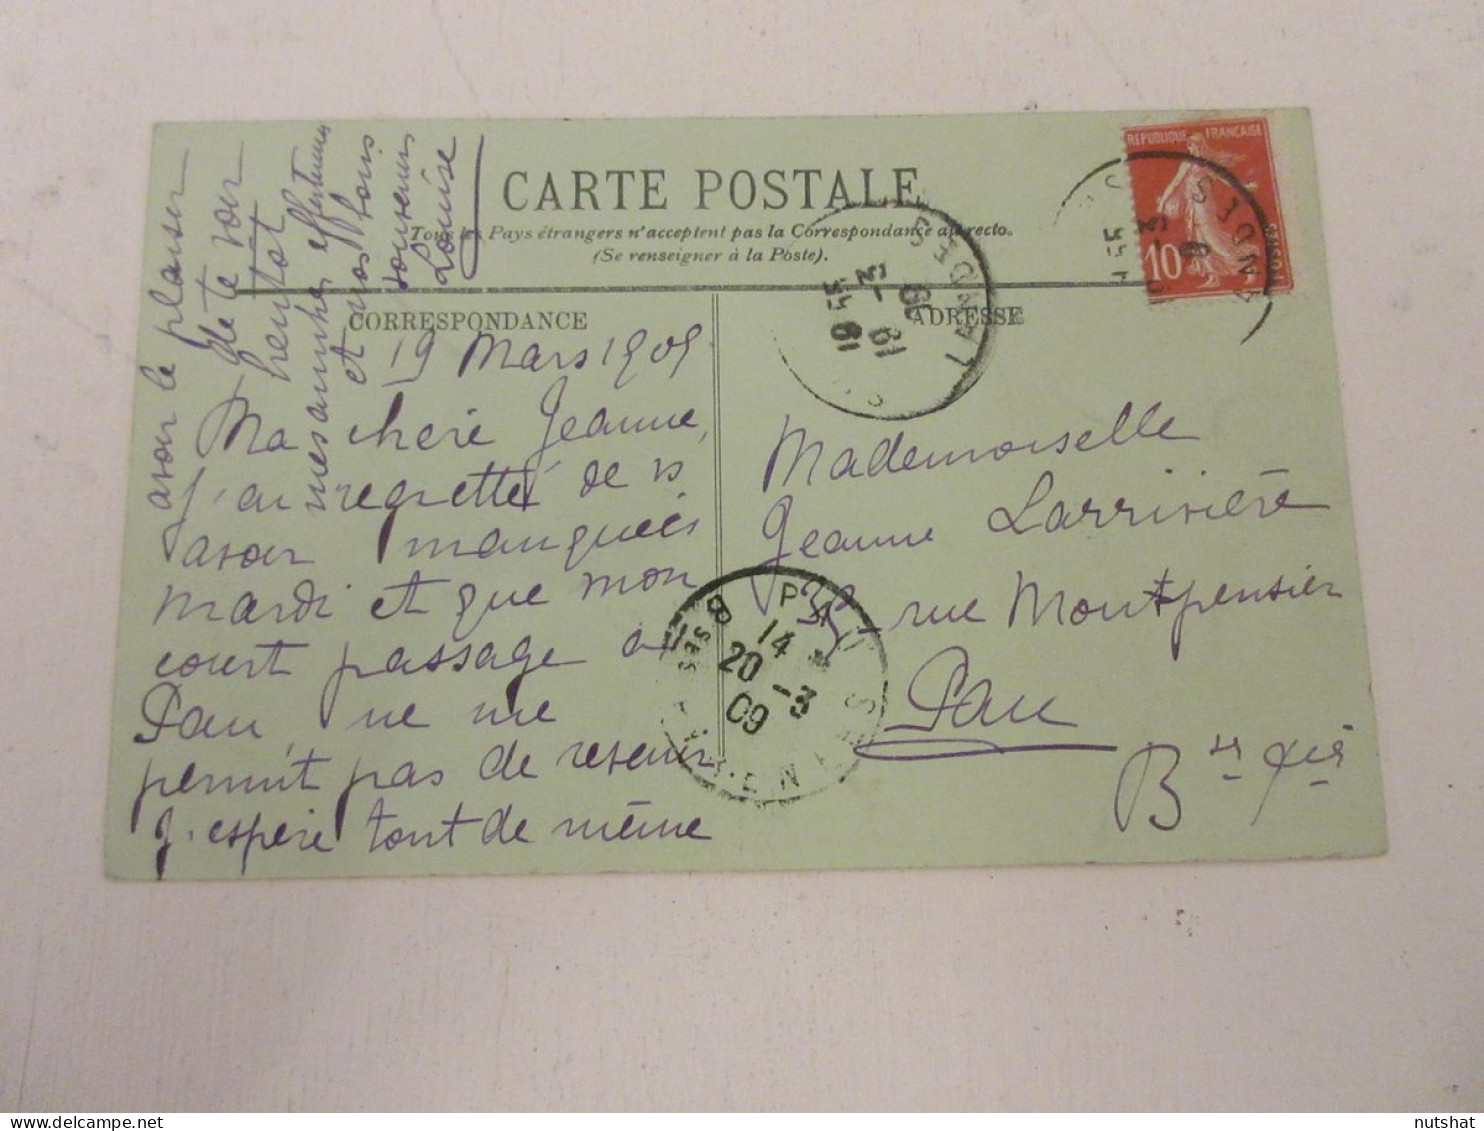 CARTE POSTALE
Tous les Pays étrangers n'acceptent pas la Correspondance au recto.
(Se renseigner à la Poste).
CORRESPONDANCE
ADRESSE
19 Mars 1909
Ma chère Jeanne,
J'ai regretté de vs
avoir manquées
mardi et que mon
court passage à
Pau, ne me
permit pas de revenir
J'espère tout de même
avoir le plaisir
de te voir
bientôt
mes amitiés affectueuses
et nos bons
souvenirs
Louise
Mademoiselle
Jeanne Larrivière
rue Montpensier
Pau
Bses Pées
REPUBLIQUE FRANÇAISE
10
POSTES
LANDES
19 45
19 -3
09
PAU
8 14
20 -3
09
nutshat